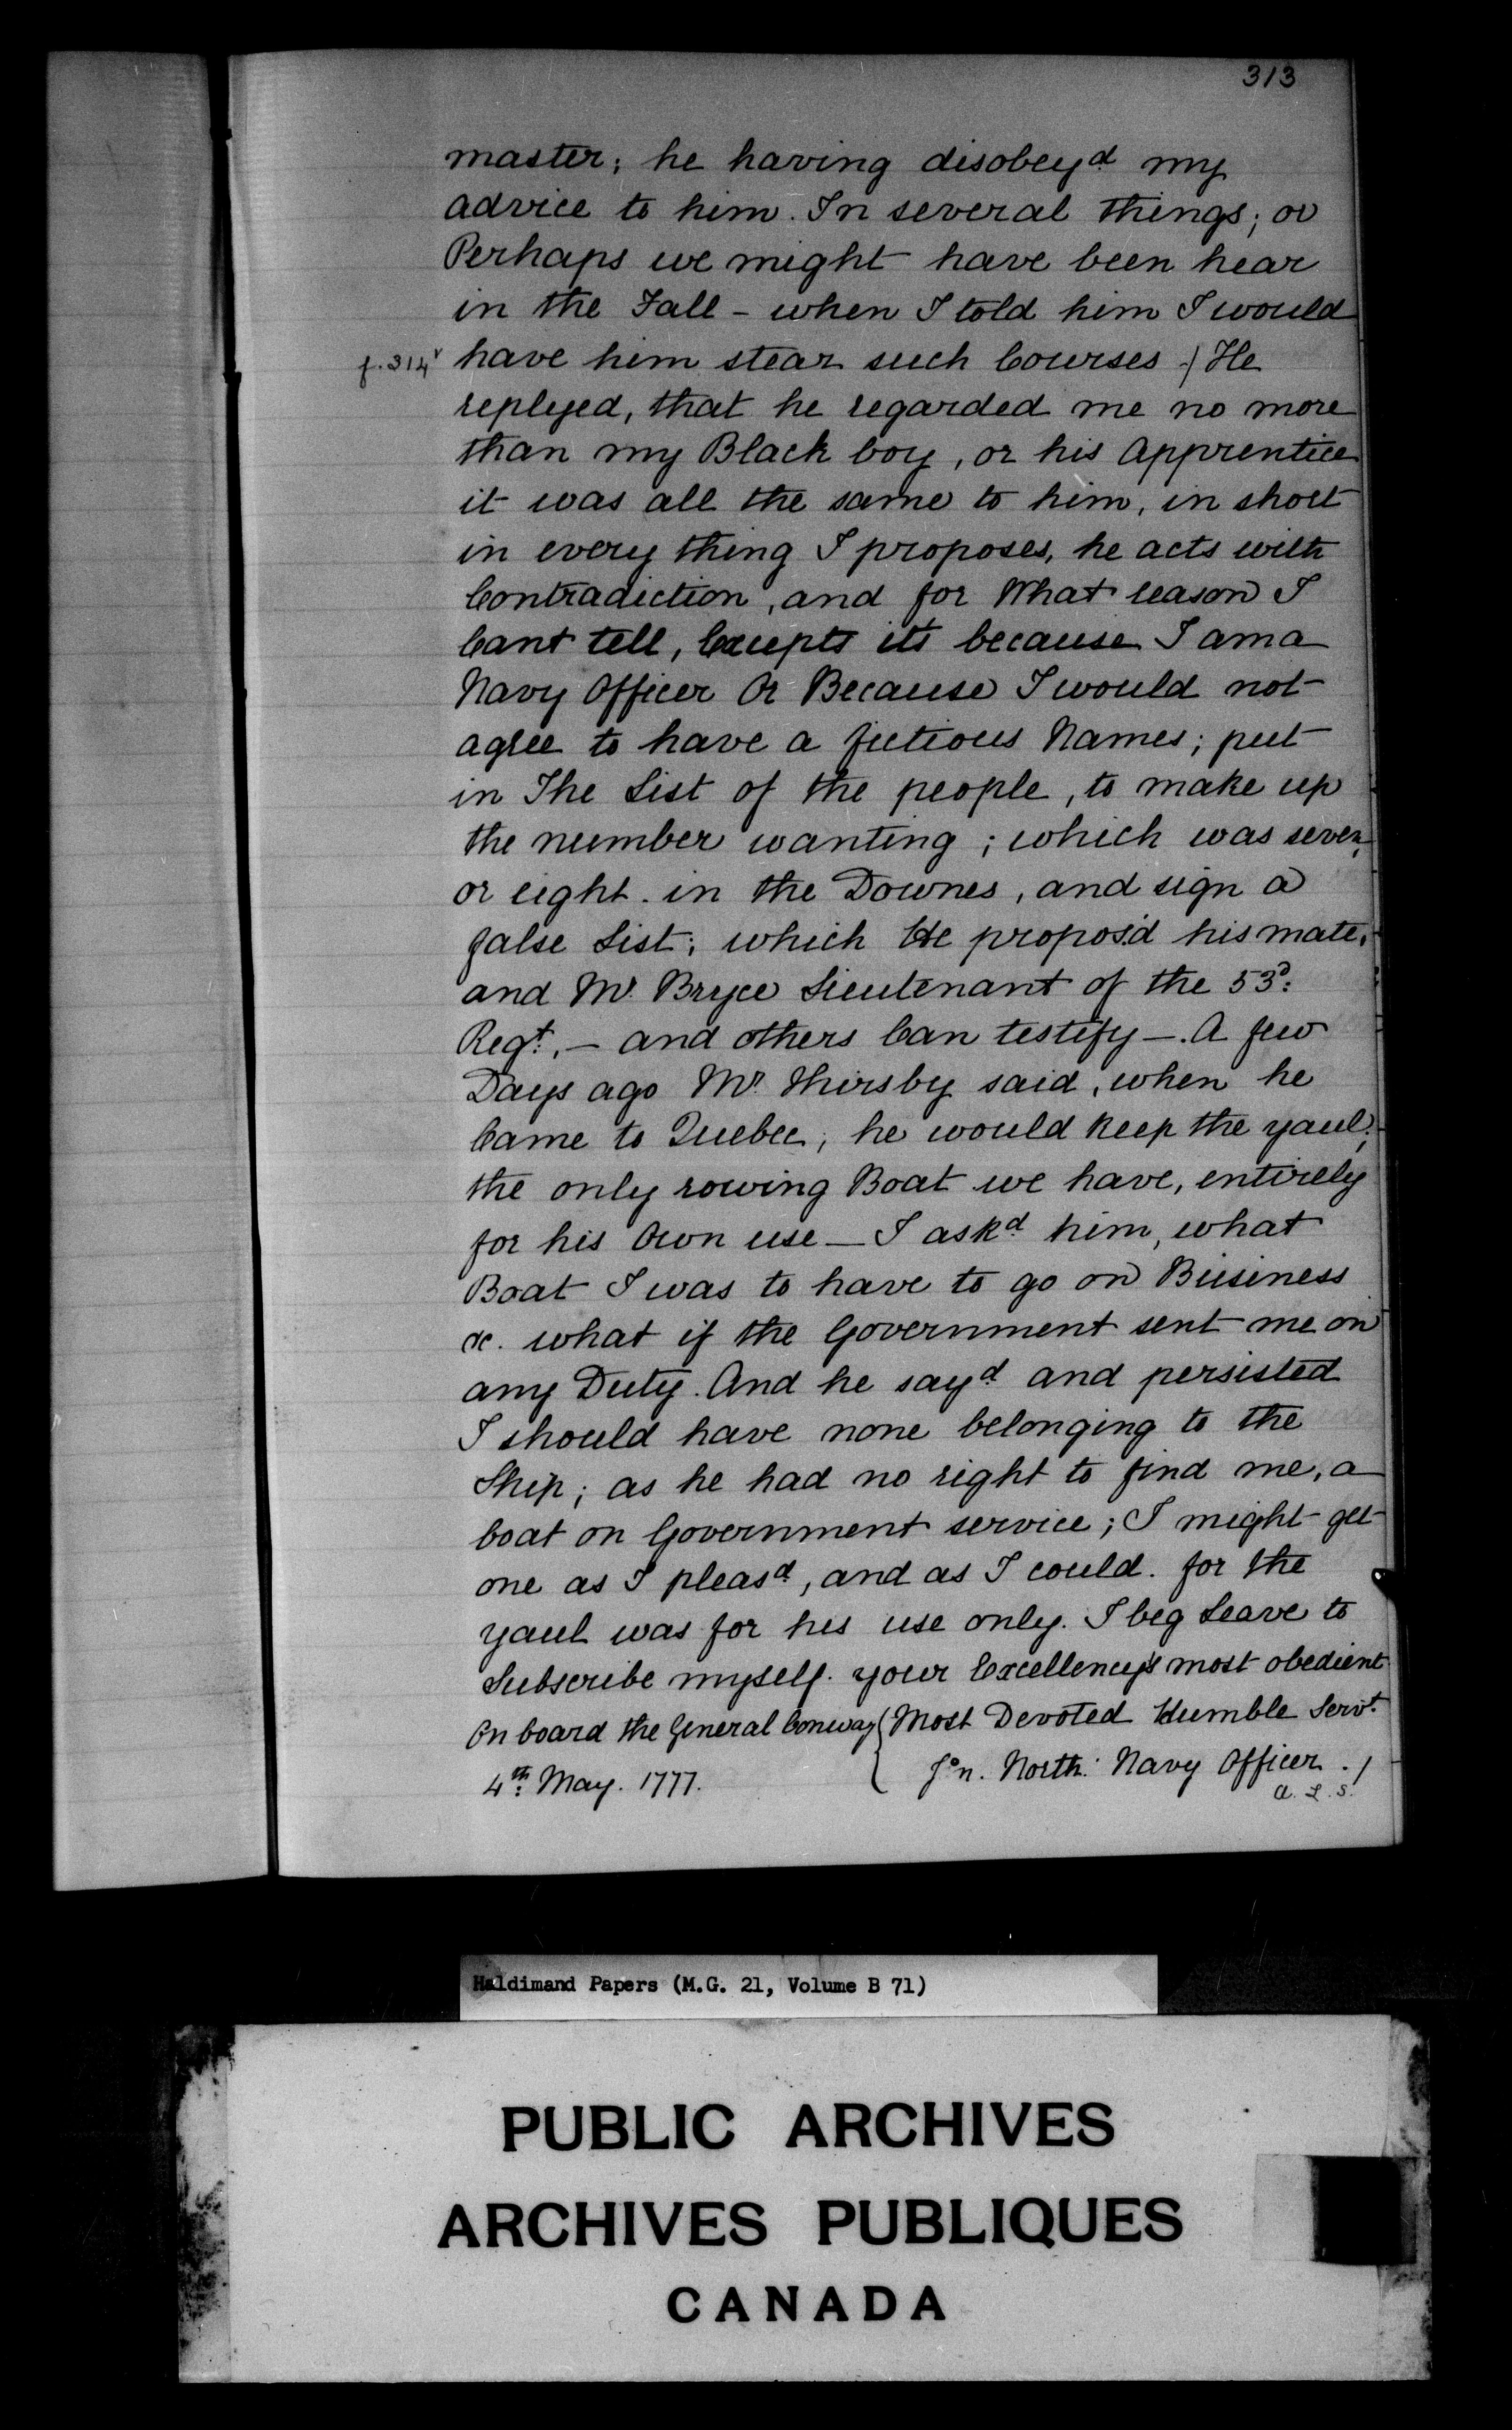 313
master; he having disobeyd my
advice to him. In several things; or
Perhaps we might have been hear
in the Fall - when I told him I would
f.314v have him stear such Courses -/ He
replyed, that he regarded me no more
than my Black boy, or his Apprentice
it was all the same to him, in short
in every thing I proposes, he acts with
Contradiction, and for What reason I
Cant tell, Excepts its because I am a
Navy Officer Or Because I would not
agree to have a fictious Names; put
in The List of the people, to make up
the number wanting; which was seven,
or eight. in the Downes, and sign a
false List; which He propos'd his mate,
and Mr. Bryce Lieutenant of the 53d:
Regt. - and others Can testify -. A few
Days ago Mr. Thirsby said, when he
Came to Quebec; he would keep the yaul;
the only rowing Boat we have, entirely
for his Own use - I askd him, what
Boat I was to have to go on Business
&c. what if the Government sent me on
any Duty. And he sayd and persisted
I should have none belonging to the
Ship; as he had no right to find me, a
boat on Government service; I might get
one as I pleasd, and as I could. for the
yaul was for his use only. I beg Leave to
Subscribe myself. your Excellency's most obedient
On board the General Conway { Most Devoted Humble Servt.
4th: May. 1777. Jon. North: Navy Officer ./
A. L. S.
Haldimand Papers (M.G. 21, Volume B 71)
PUBLIC ARCHIVES
ARCHIVES PUBLIQUES
CANADA